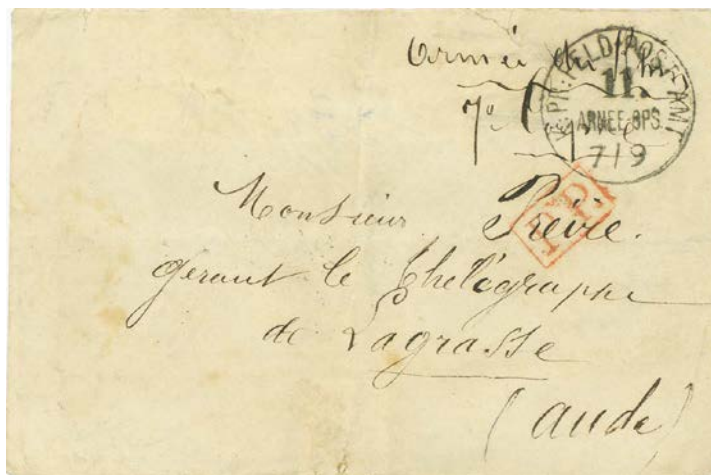 Armée du Rhin
7e Corps
K. PR. FELD-POST-AMT
11.
ARMEE-CPS.
7/9
P.P.
Monsieur Rêve.
gerant le Thelégraphe
de Lagrasse
(aude)